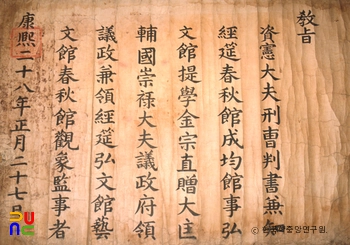 敎旨
資憲大夫刑曹判書兼知
經筵春秋館成均館事弘
文館提學金宗直贈大匡
輔國崇禄大夫議政府領
議政兼領經筵弘文館藝
文館春秋館觀象監事者
康熙二十八年正月二十七日
© 한국학중앙연구원